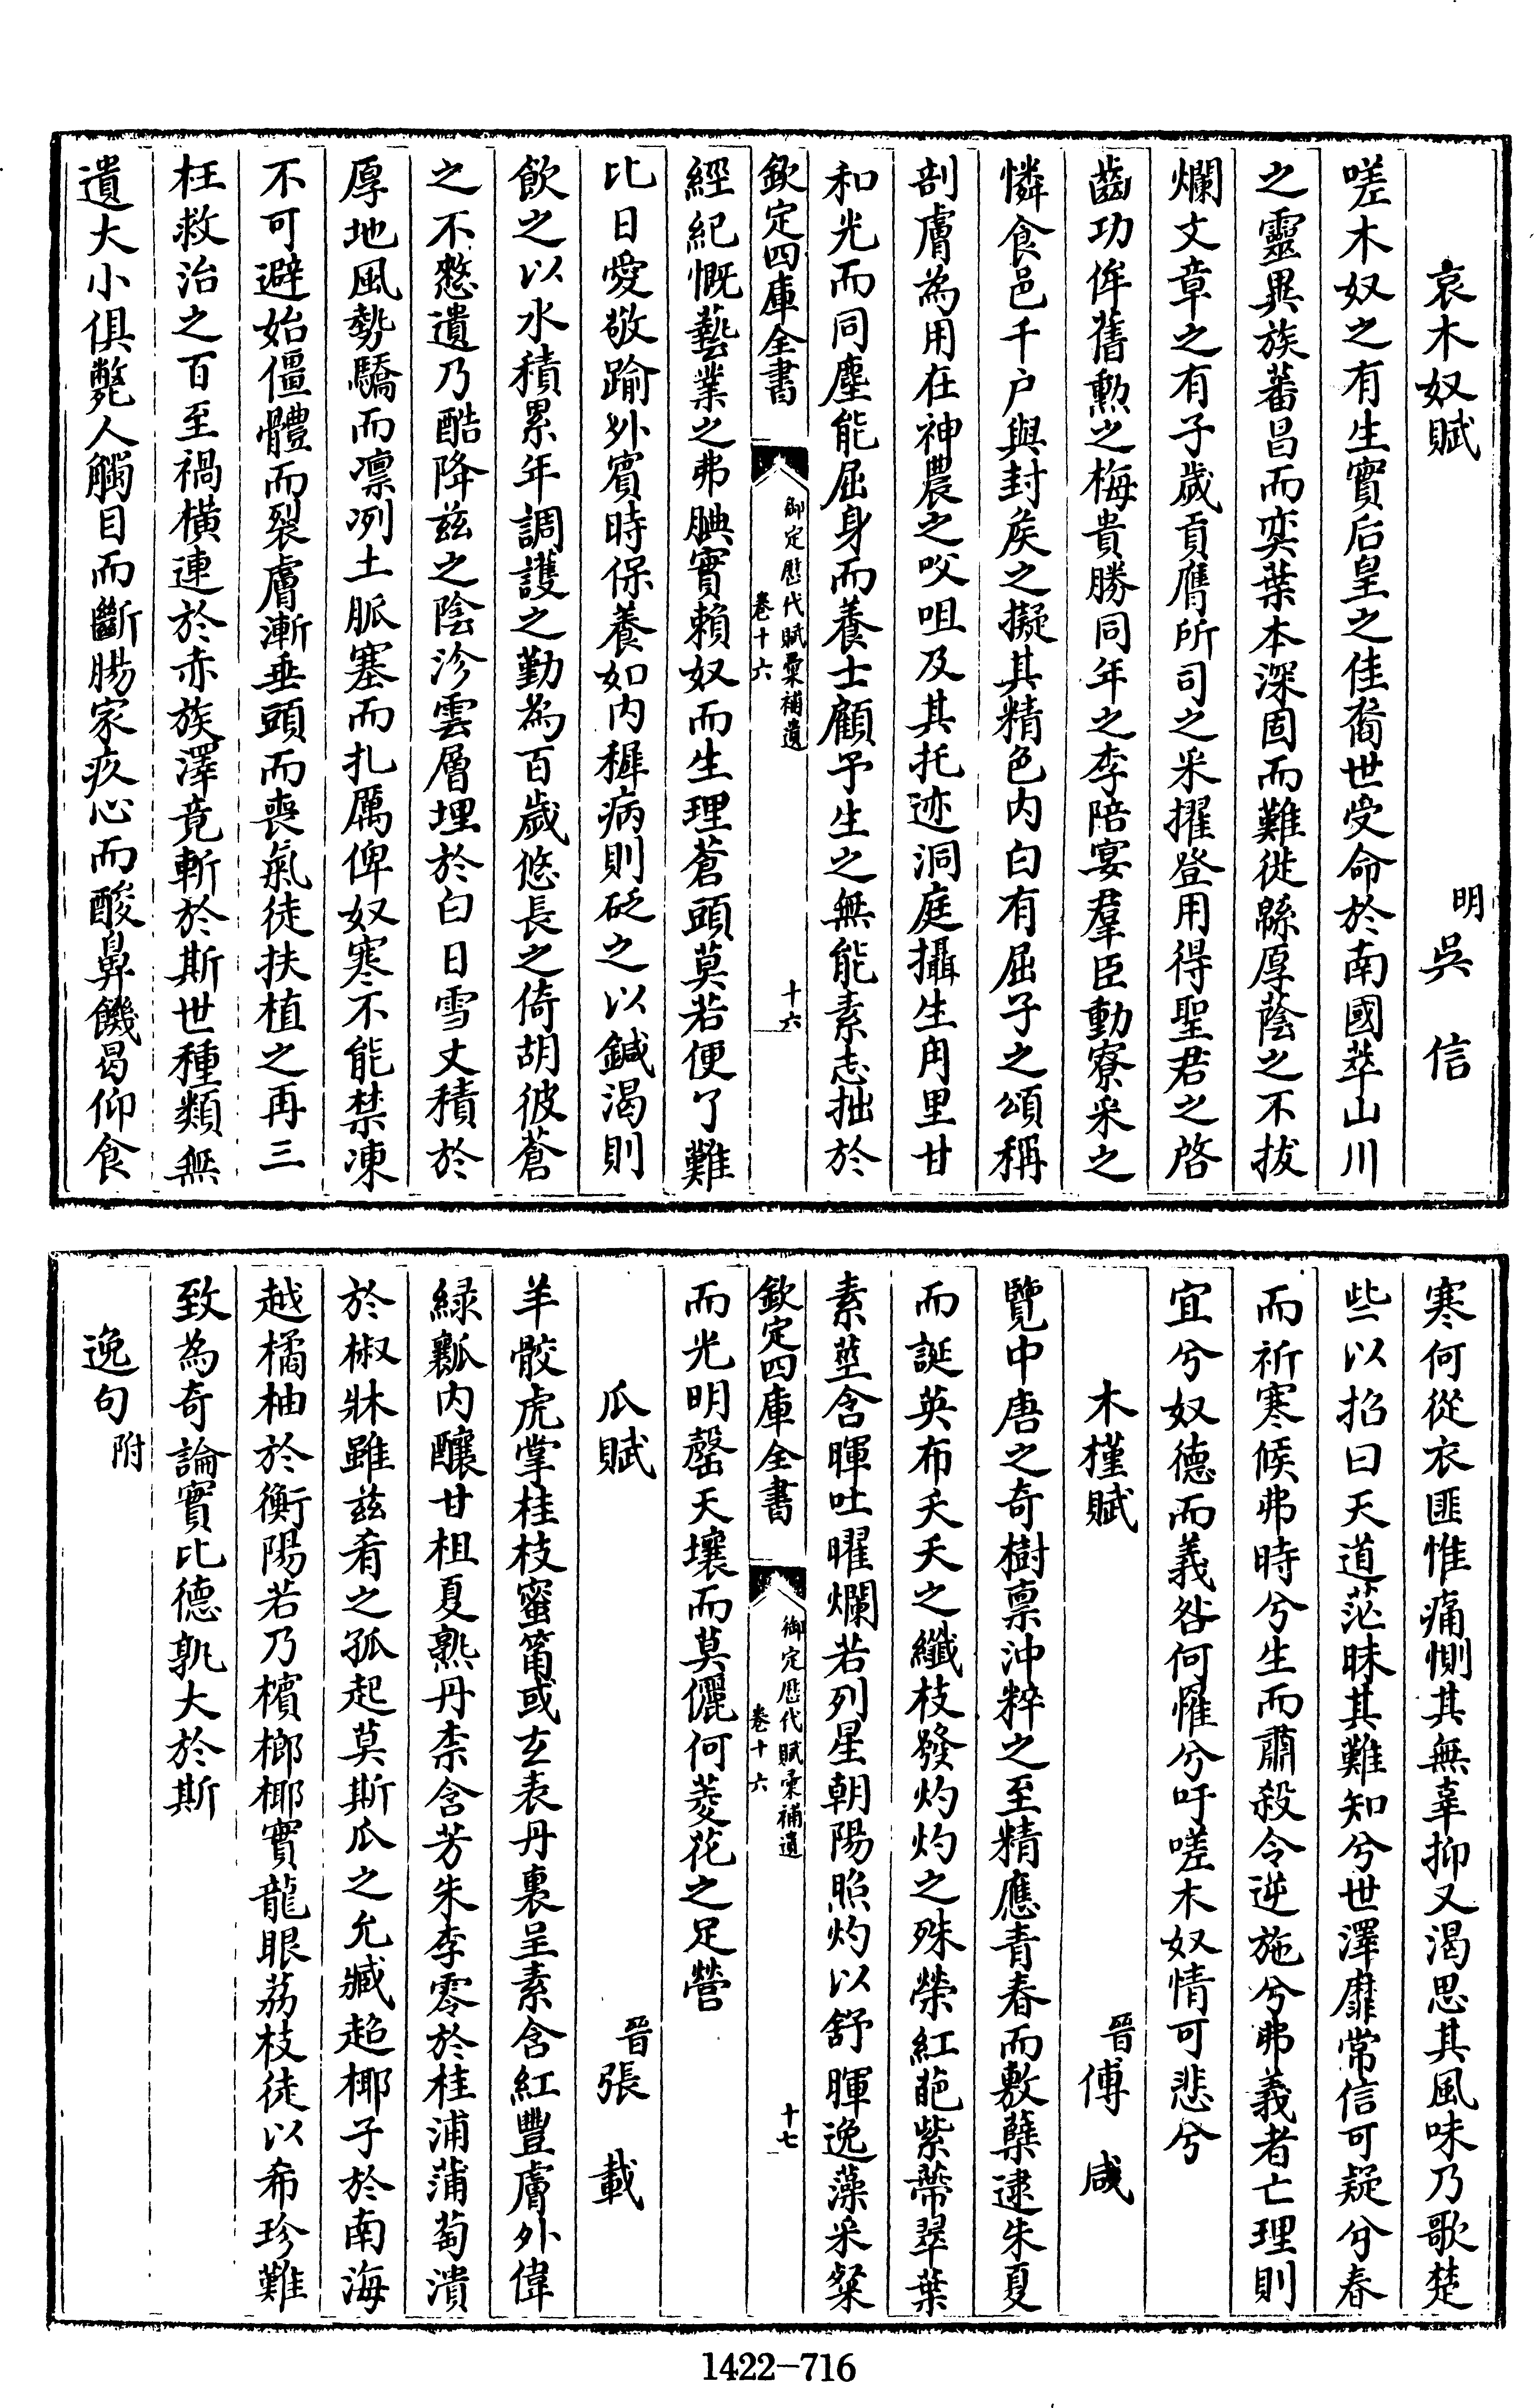 哀木奴賦
明吳信
嗟木奴之有生實后皇之佳裔世受命於南國萃山川
之靈異族蕃昌而奕葉本深固而難徙緜厚蔭之不拔
爛文章之有子歲貢膺所司之采擢登用得聖君之啓
齒功侔舊勲之梅貴勝同年之李陪宴羣臣動寮寀之
憐食邑千户與封矦之擬其精色内白有屈子之頌稱
剖膚為用在神農之㕮咀及其托迹洞庭攝生甪里甘
和光而同塵能屈身而養士顧予生之無能素志拙於
欽定四庫全書
御定歴代賦彚補遺
卷十六
十六
經紀慨藝業之弗腆實賴奴而生理蒼頭莫若便了難
比日愛敬踰外賓時保養如内穉病則砭之以鍼渴則
飲之以水積累年調護之勤為百歲悠長之倚胡彼蒼
之不憗遺乃酷降兹之陰沴雲層埋於白日雪丈積於
厚地風勢驕而凛冽土脈塞而扎厲俾奴寒不能禁凍
不可避始僵體而裂膚漸垂頭而喪氣徒扶植之再三
枉救治之百至禍橫連於赤族澤竟斬於斯世種類無
遺大小俱斃人觸目而斷腸家疚心而酸鼻饑曷仰食
寒何從衣匪惟痛惻其無辜抑又渴思其風味乃歌楚
些以招曰天道茫昧其難知兮世澤靡常信可疑兮春
而祈寒候弗時兮生而肅殺令逆施兮弗義者亡理則
宜兮奴德而義咎何罹兮吁嗟木奴情可悲兮
木槿賦
晉傅咸
覽中唐之奇樹禀沖粹之至精應青春而敷蘖逮朱夏
而誕英布夭夭之纖枝發灼灼之殊榮紅葩紫蔕翠葉
素莖含暉吐曜爛若列星朝陽照灼以舒暉逸藻采粲
欽定四庫全書
御定歴代賦彚補遺
卷十六
十七
而光明罄天壤而莫儷何菱花之足營
瓜賦
晉張載
羊骹虎掌桂枝蜜筩或玄表丹裏呈素含紅豐膚外偉
緑瓤内釀甘柤夏熟丹柰含芳朱李零於桂浦蒲萄潰
於椒牀雖兹肴之孤起莫斯瓜之允臧超椰子於南海
越橘柚於衡陽若乃檳榔椰實龍眼荔枝徒以希珍難
致為奇論實比德孰大於斯
逸句附
1422-716